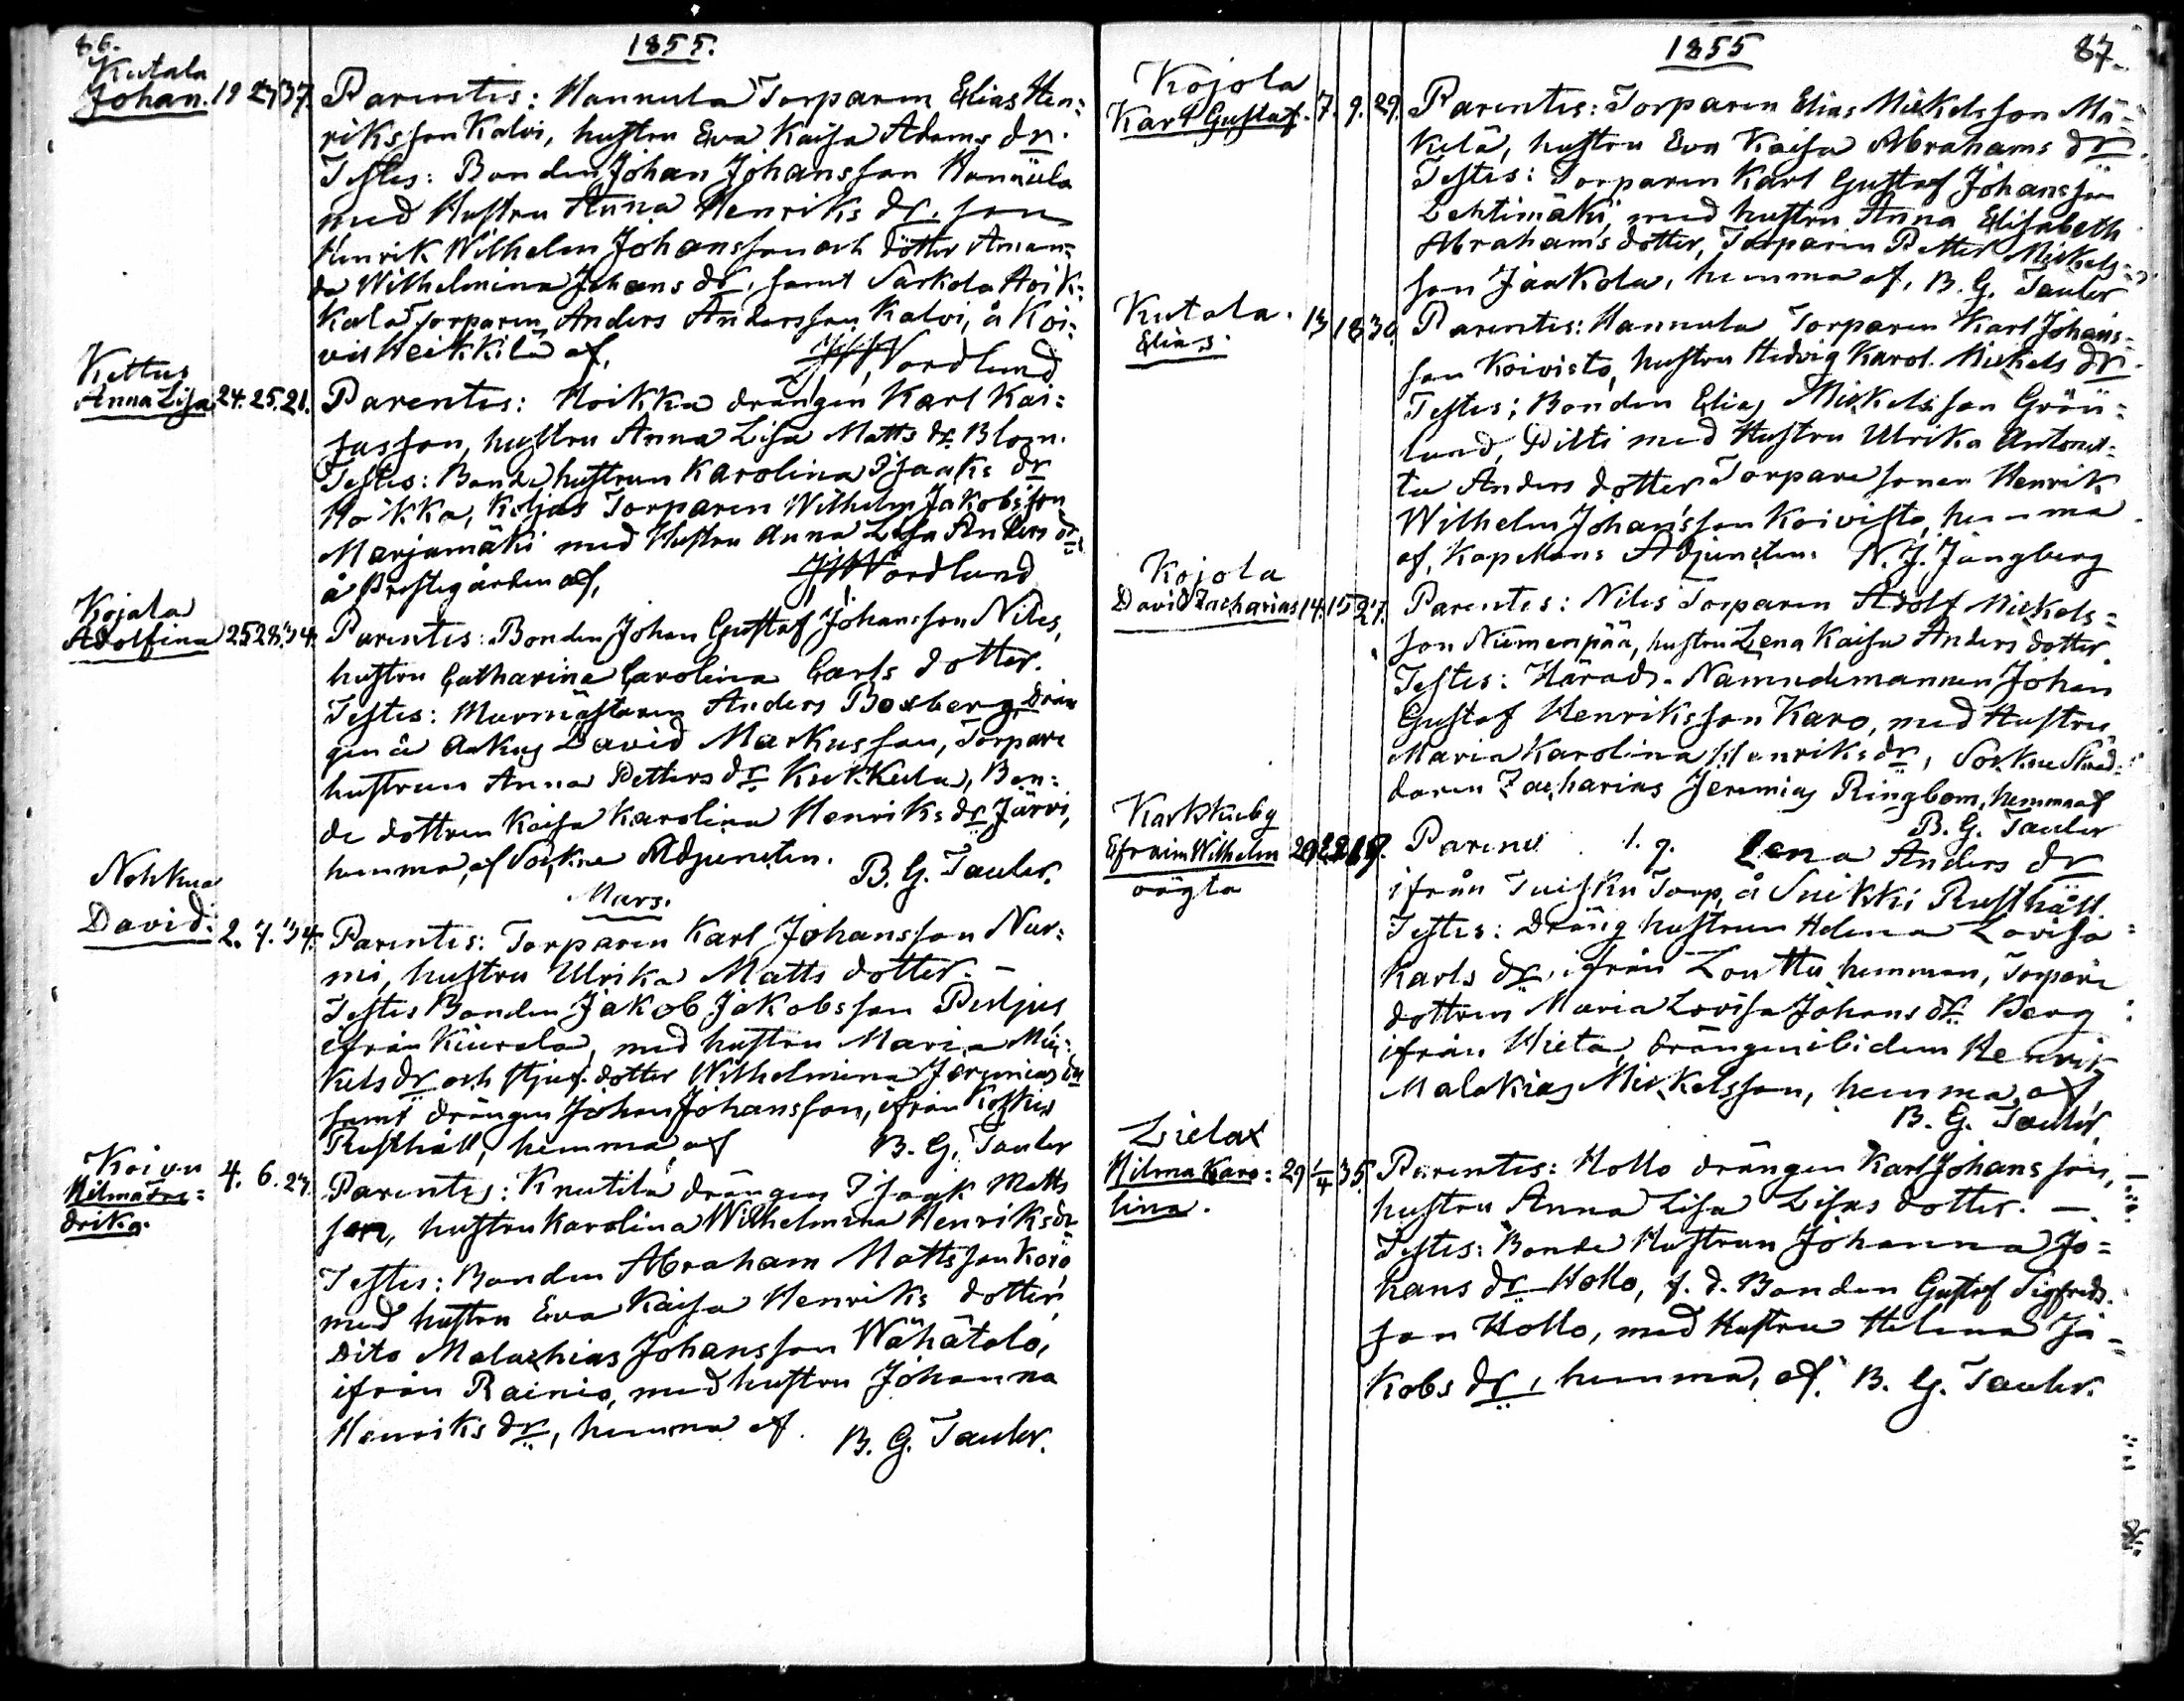 86.
1855.
Kutala
Johan. 19 27 37.
Parentes: Hannula Torparen Elias Hen=
riksson Kalvi, hustru Eva Kaisa Adams dr.
Testes: Bonden Johan Johansson Hannula
med Hustru Anna Henriks dr. son
Henrik Wilhelm Johansson och dotter Aman=
da Wilhelmina Johans dr, samt Sarkola Hoik=
kala Torparen Anders Andersson Kalvi, å Koi=
vu Heikkilä af, Nordlund
Kettus
Anna Lisa 24. 25. 21.
Parentes: Hoikka drängen Karl Kai=
sasson, hustru Anna Lisa Matts dr Blom.
Testes: Bonde hustrun Karolina Isaaks dr
Hoikka, Koljas Torparen Wilhelm Jakobsson
Marjamäki med Hustru Anna Lisa Anders dr
å Prestegården af, Nordlund
Kojola
Adolfina 25 28. 34.
Parentes: Bonden Johan Gustaf Johansson Niles,
hustru Catharina Carolina Carls dotter.
Testes: Murmästaren Anders Boxberg, drän
gen å David Markusson, Torpare
hustrun Anna Petters dr Kukkula, Bon=
de dottren Kaisa Karolina Henriks dr Järvi,
hemma, af Sockne Adjuncten. B. G. Tauler.
Mars.
Nohkua
David. 2. 7. 34.
Parentes: Torparen Karl Johansson Nur=
mi, hustru Ulrika Matts dotter. -
Testes Bonden Jakob Jakobsson Peljus
ifrån Kiurala, med hustru Maria Mic=
kels dr och stjuf dotter Wilhelmina Jeremias dr
samt drängen Johan Johansson, ifrån
Rusthåll, hemma af B. G. Tauler
Koivu
Hilma Fre=
drika. 4. 6. 27.
Parentes: Knutila drängen Isaak Matts
son, hustru Karolina Wilhelmina Henriks dr
Testes: Bonden Abraham Mattsson
med hustru Eva Kaisa Henriks dotter,
Dito Malachias Johansson Wähätalo,
ifrån Rainio, med hustru Johanna
Henriks dr, hemma af B. G. Tauler.
1855
87.
Kojola
Karl Gustaf. 7. 9. 29.
Parentes: Torparen Elias Mickelsson Mä=
kelä, hustru Eva Kaisa Abrahams dr.
Testes: Torparen Karl Gustaf Johansson
Lehtimäki, med hustru Anna Elisabeth
Abrahams dotter, Torparen Petter Mickels=
son Jaakola, hemma af, B. G. Tauler
Kutala.
Elias. 13 18 30.
Parentes: Hannula Torparen Karl Johans=
son Koivisto, hustru Hedvig Karol. Mickels dr.
Testes: Bonden Elias Mickelsson Grön=
lund, Pilti med Hustru Ulrika Antonet=
ta Anders dotter Torpare sonen Henrik
Wilhelm Johansson Koivisto, hemma
af, Kapellans Adjuncten. N. J. Jungberg
Kojola
David Zacharias 14. 15 27.
Parentes: Niles Torparen Adolf Mickels=
son Niemenpää, hustru Lena Kaisa Anders dotter
Testes: Härads-Nämndemannen Johan
Gustaf Henriksson Karo, med Hustru
Maria Karolina Henriks dr, Sockne Skräd=
daren Zacharias Jeremias Ringbom, hemma af
B. G. Tauler
Karkkuby
Efraim Wilhelm
oägta
Parens l. q. Lena Anders dr
ifrån Tuisku Torp, å Suikki Rusthåll
Testes: Dräng hustrun Helena Lovisa
Karls dr, ifrån Louttu hemman, Torpare
dottren Maria Lovisa Johans dr Berg
ifrån Hieta, drängen ibidem Henrik
Malakias Mickelsson, hemma, af
B. G. Tauler.
Lielax
Hilma Karo=
lina. 29 1/4 35.
Parentes: Hollo drängen Karl Johansson,
hustru Anna Lisa Lisas dotter. -
Testes: Bonde Hustrun Johanna Jo=
hans dr Hollo, f. d. Bonden Gustaf Sigfreds
son Hollo, med Hustru Helena Ja=
kobs dr, hemma, af. B. G. Tauler.